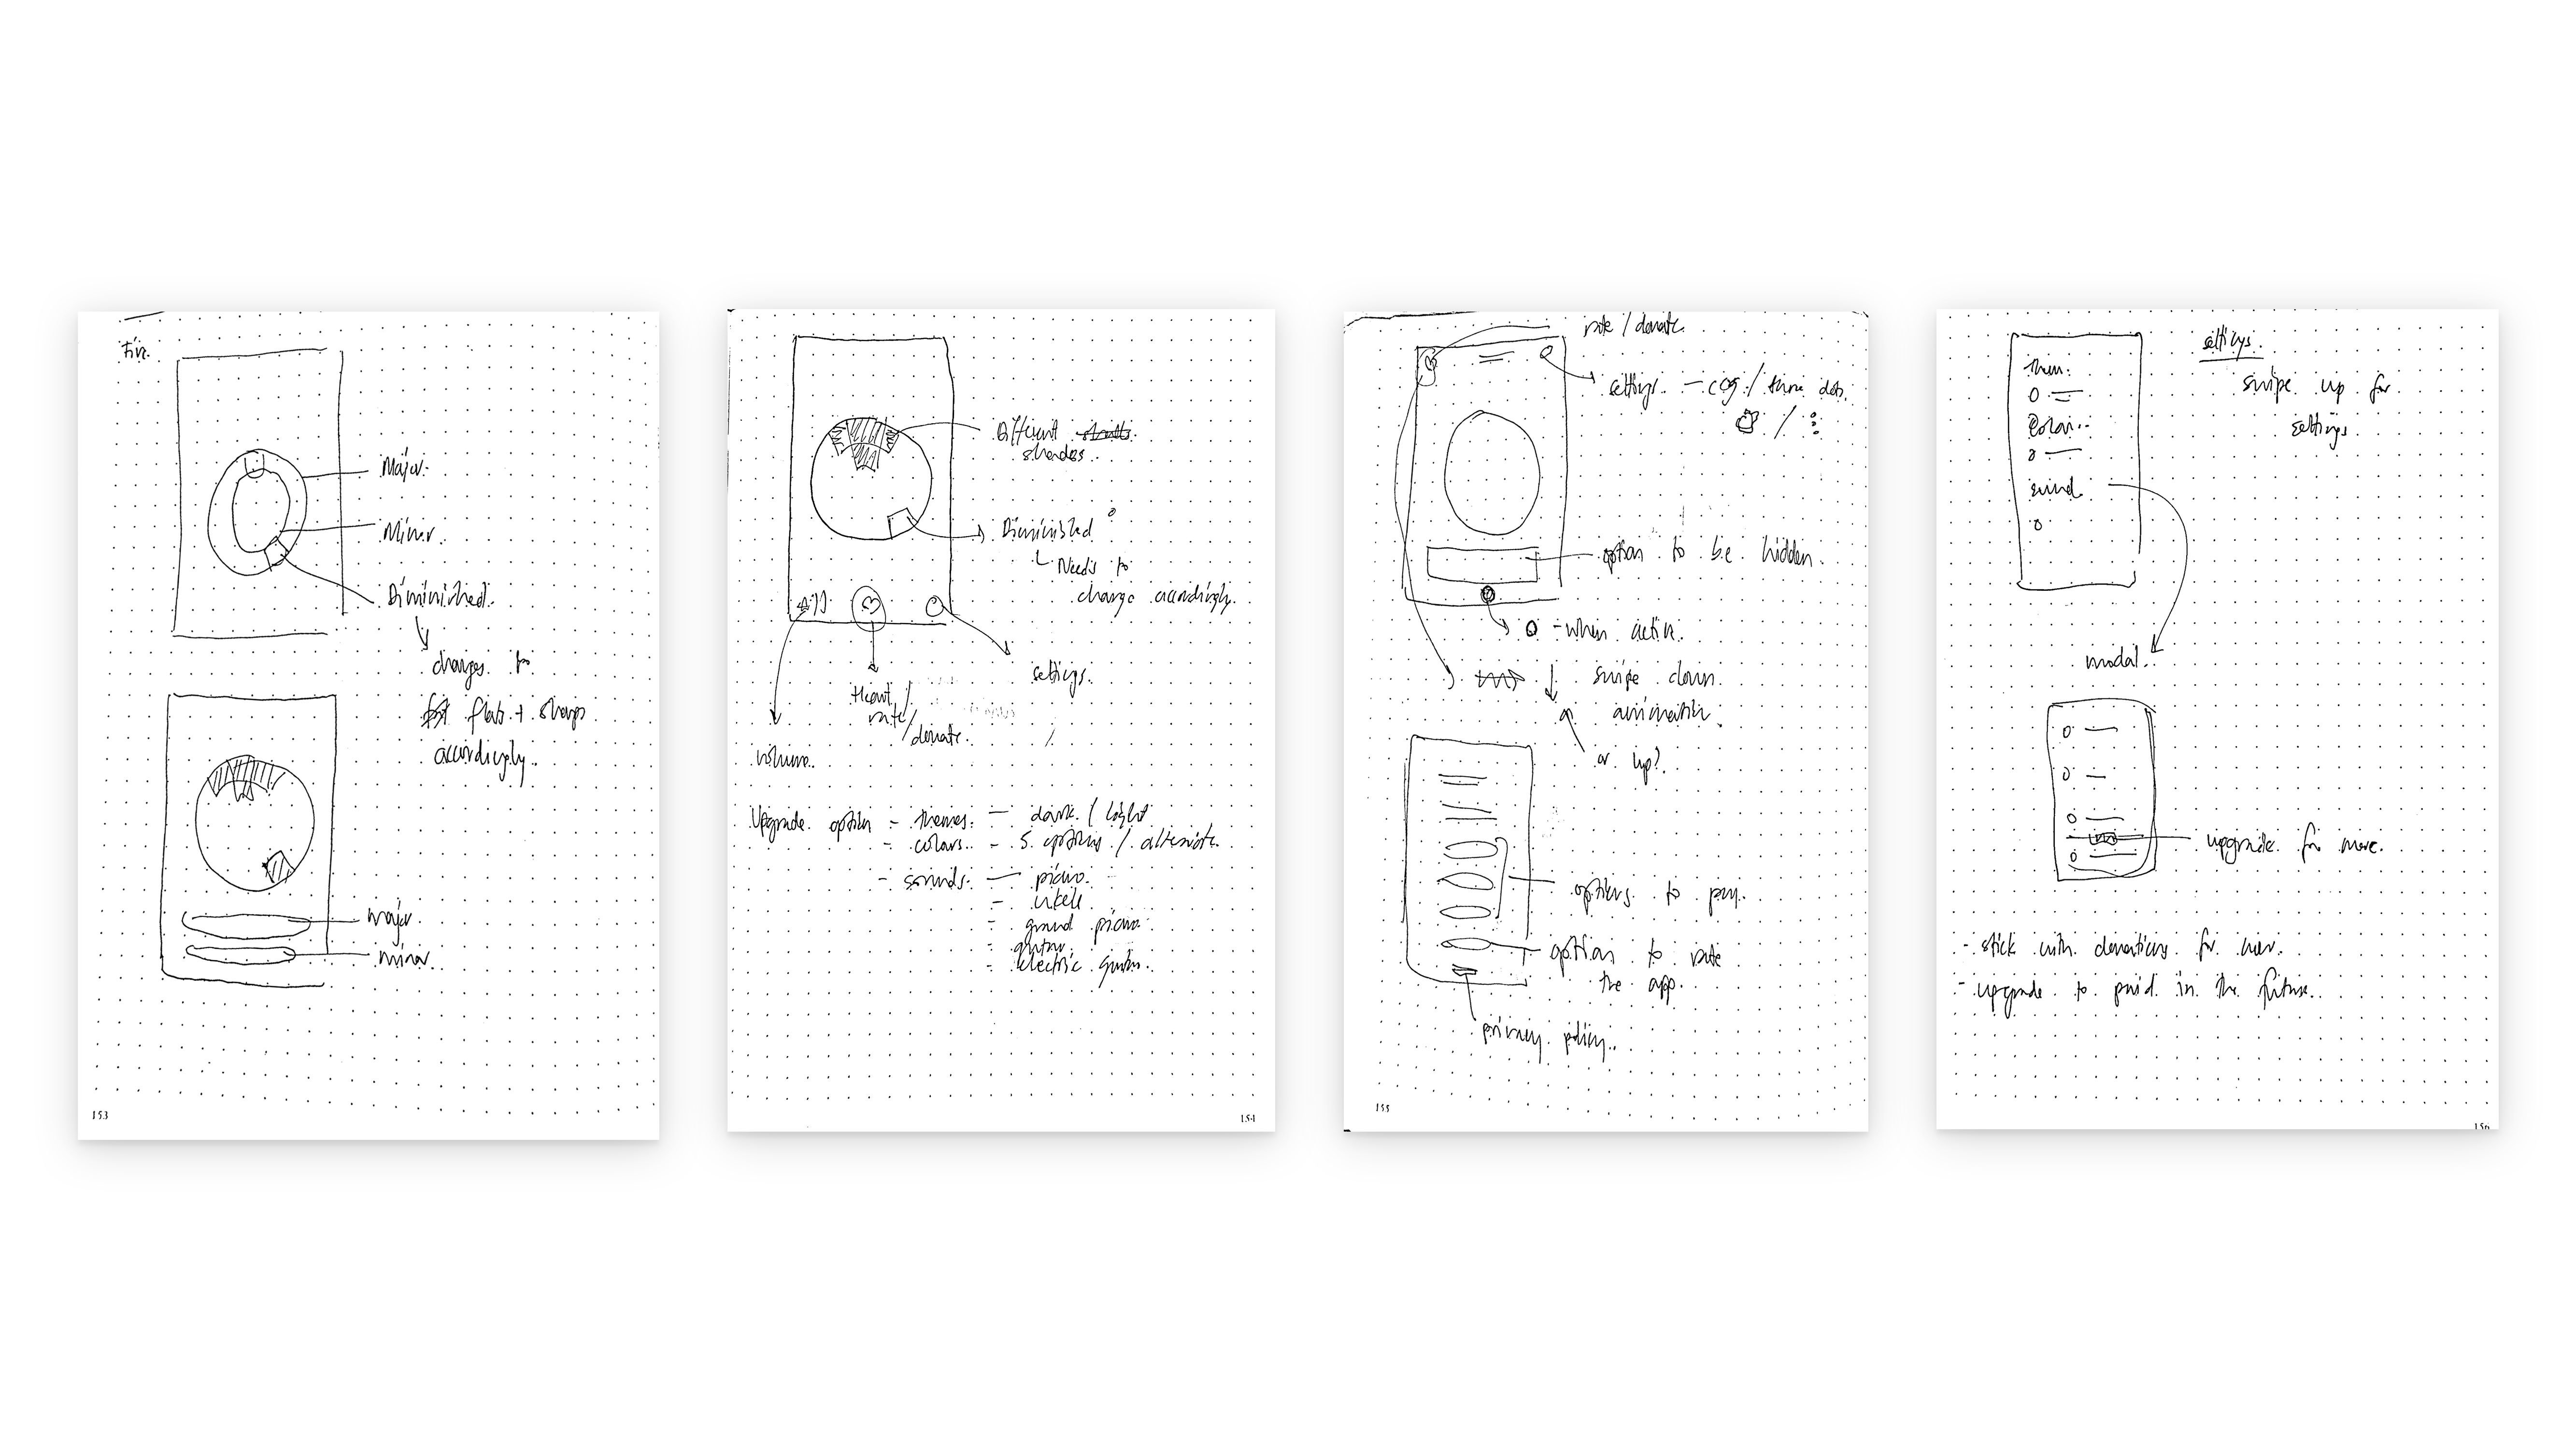 Major.
Minor.
Diminished.
changes to
flats + sharps
accordingly..
major.
minor.
153
Different
shades..
Diminished
Needs to
change accordingly.
settings.
Heart /
rate/
donate.
volume..
Upgrade option - themes. - dark / light
- colors.. - 5 options / alternate.
- sounds. - piano.
- ukele
- grand piano.
- guitar.
- electric guitar..
154
rate / donate.
settings. - cog / three dots.
/
option to be hidden.
- when active.
swipe down.
animation.
or up?.
options to pay.
option to rate
the app.
privacy policy..
155
settings.
swipe up for
settings.
Theme.
Colors..
sound.
modal.
upgrade for more.
- stick with donations for now.
- upgrade to paid in the future..
156